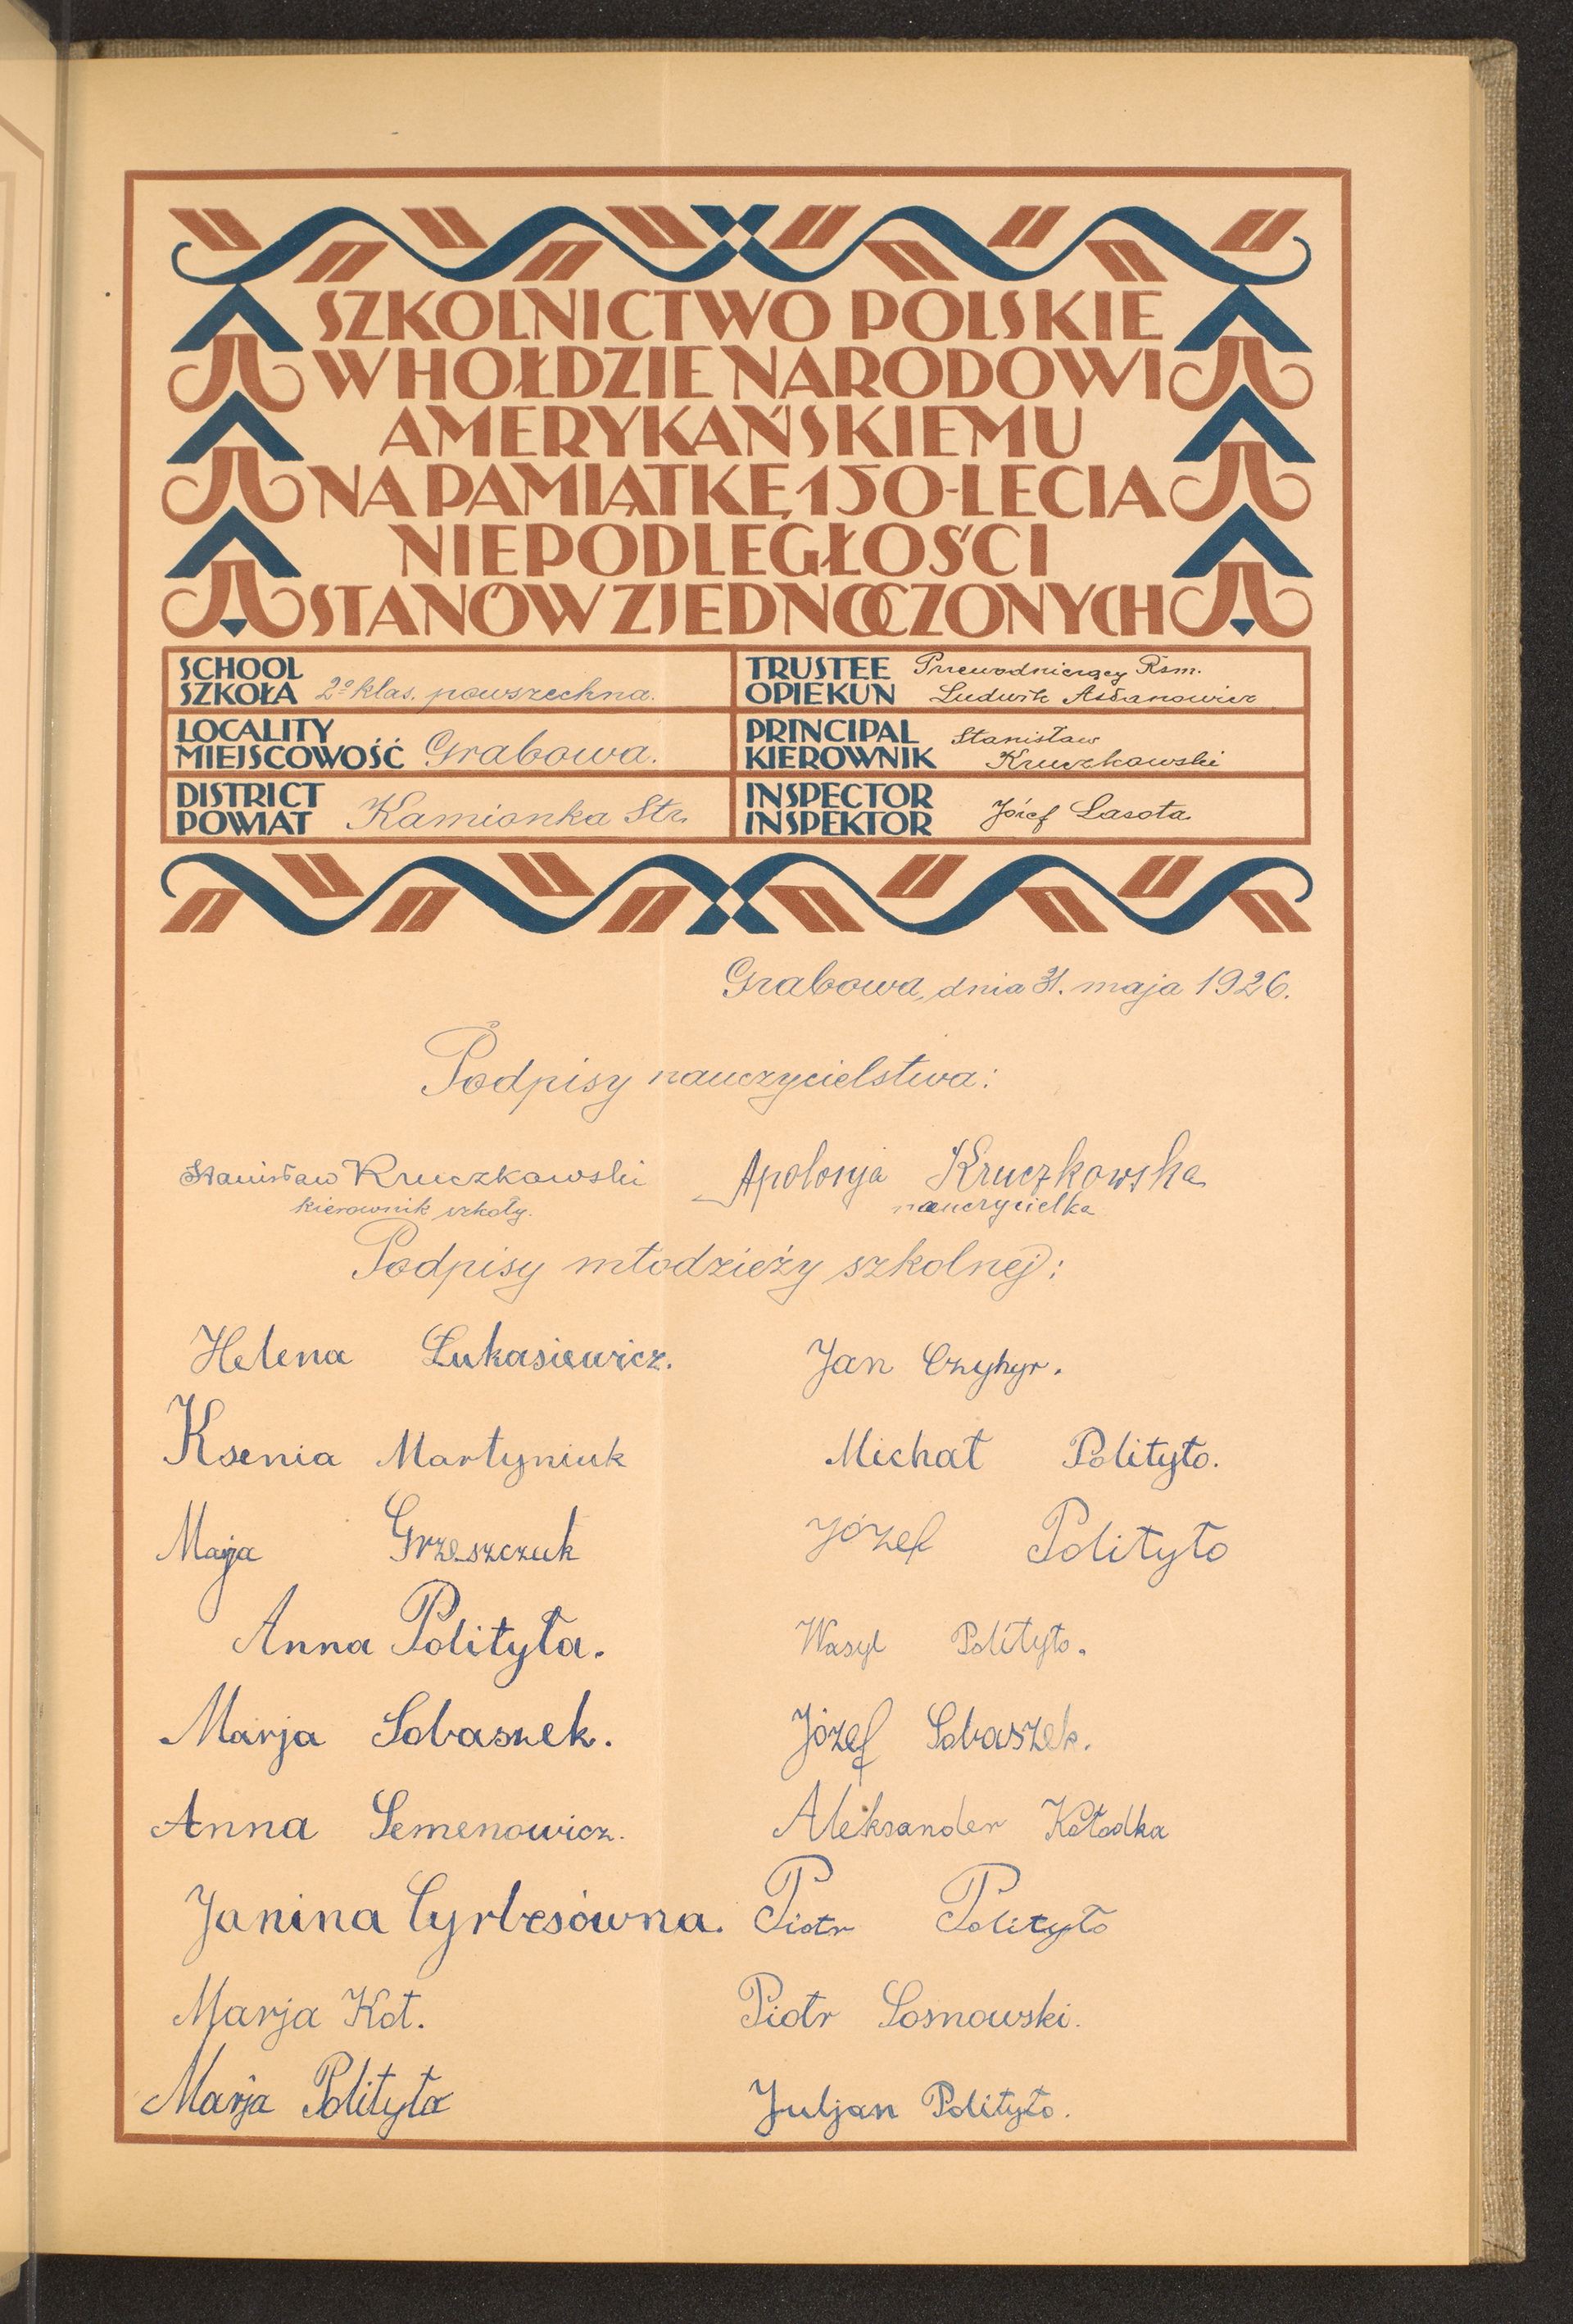 SZKOLNICTWO POLSKIE
W HOŁDZIE NARODOWI
AMERYKAŃSKIEMU
NA PAMIĄTKĘ 150-LECIA
NIEPODLEGŁOŚCI
STANÓW ZJEDNOCZONYCH
SCHOOL
SZKOŁA 2º klas. powszechna.
TRUSTEE Przewodniczący Rsm.
OPIEKUN Ludwik
LOCALITY
MIEJSCOWOŚĆ Grabowa.
PRINCIPAL Stanisław
KIEROWNIK Kruczkowski
DISTRICT
POWIAT Kamionka Str.
INSPECTOR
INSPEKTOR Józef Lasota.
Grabowa, dnia 31. maja 1926.
Podpisy nauczycielstwa:
Stanisław Kruczkowski Apolonja Kruczkowska
kierownik szkoły. nauczycielka
Podpisy młodzieży szkolnej:
Helena Łukasiewicz. Jan Czyhyr.
Ksenia Martyniuk Michał Polityło.
Marja Grzeszczuk Józef Polityło
Anna Polityła. Wasyl Polityło.
Marja Sobaszek. Józef Sobaszek.
Anna Semenowicz. Aleksander Kołodka
Janina Cyrbesówna. Piotr Polityło
Marja Kot. Piotr Sosnowski.
Marja Polityła Juljan Polityło.